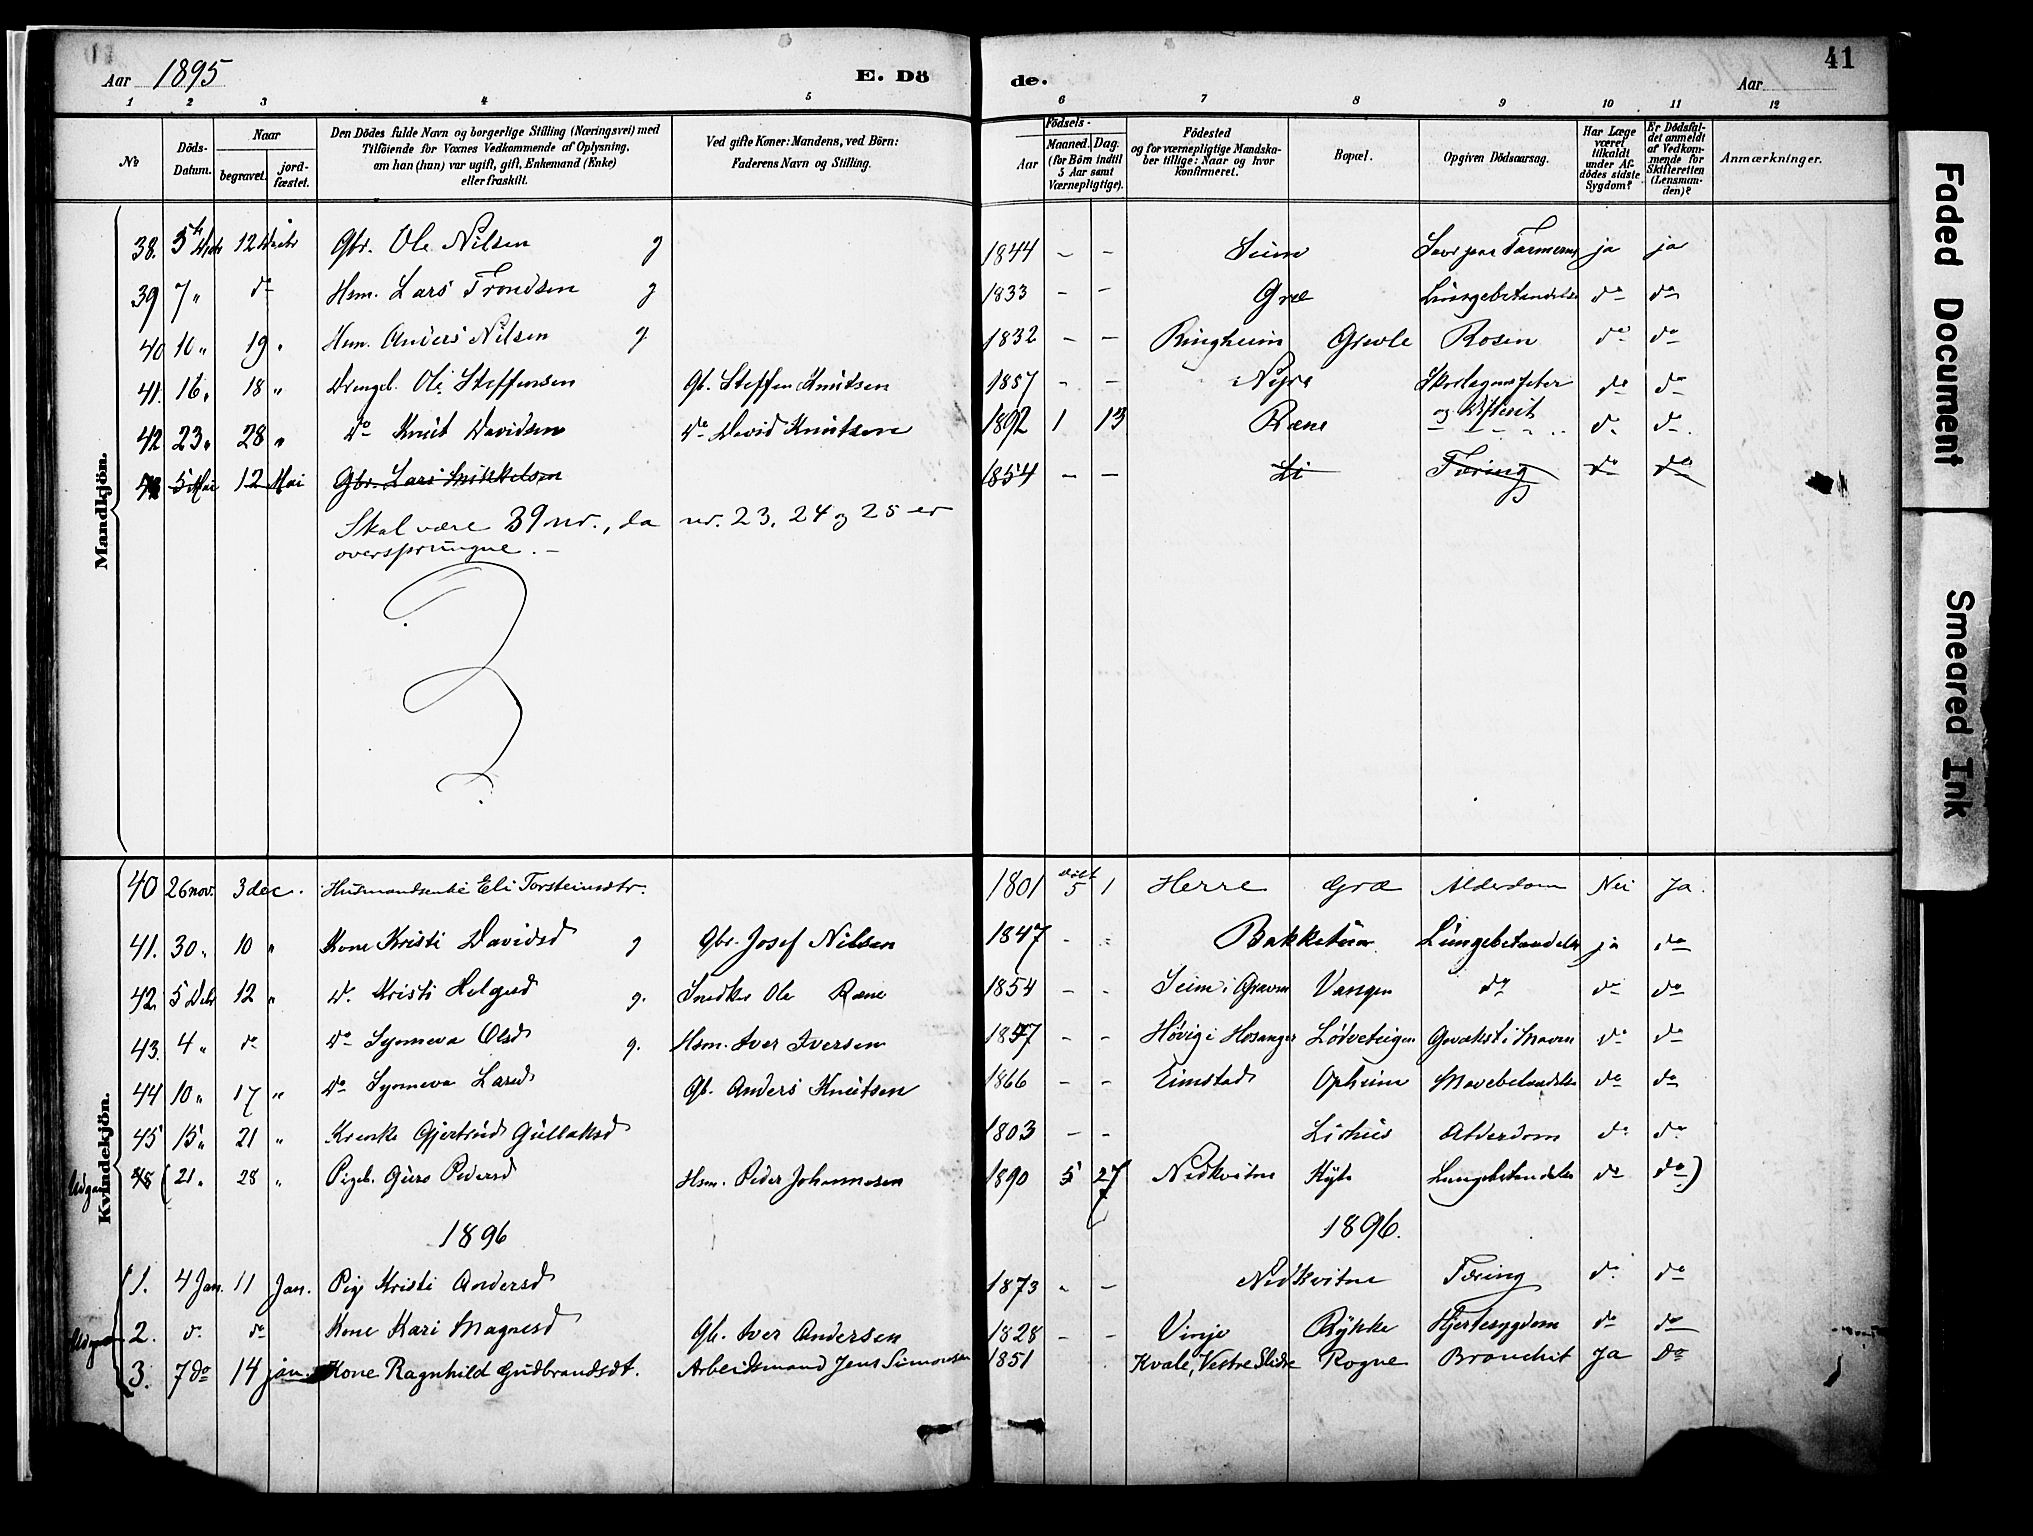 Aar 1895 E. Dö de. Aar 41
1 2 3 4 5 6 7 8 9 10 11 12
No
Döds-Datum.
Naar
begravet.
jord-fæstet.
Den Dödes fulde Navn og borgerlige Stilling (Næringsvei) med
Tilföiende for Voxnes Vedkommende af Oplysning,
om han (hun) var ugift, gift, Enkemand (Enke)
eller fraskilt.
Ved gifte Koner: Mandens, ved Börn:
Faderens Navn og Stilling.
Födsels-
Aar
Maaned. Dag.
(for Börn indtil
5 Aar samt
Værnepligtige).
Födested
og for værnepligtige Mandska-
ber tillige: Naar og hvor
konfirmeret.
Bopæl.
Opgiven Dödsaarsag.
Har Læge
været
tilkaldt
under Af-
dödes sidste
Sygdom?
Er Dödsfal-
det anmeldt
af Vedkom-
mende for
Skifteretten
(Lensman-
den)?
Anmærkninger.
Mandkjön.
38. 5te Decbr 12 Decbr Gbr. Ole Nilsen g 1844 - - Seim ja ja
39 7 " do Hsm. Lars Trondsen g 1833 - - Græ Lungebetændelse do do
40 10 " 19 " Hsm. Anders Nilsen g. 1832 - - Ringheim Grevle Rosen do do
41. 16 " 18 " Drengeb. Ole Steffensen Gb. Steffen Knutsen 1887 - - Nyre do do
42 23 " 28 " do Knut Davidsen do David Knutsen 1892 1 13 Ræne og Difterit do do
43 5 Mai 12 Mai Gbr. Lars Mikkelsen 1854 - - Li Tæring do do
Skal være 39 nr., da nr. 23, 24 og 25 er
oversprungne. -
Kvindekjön.
40 26 nov. 3 dec. Husmandsenke Eli Torsteinsdtr. 1801 døbt 5 1 Herre Græ Alderdom Nei Ja.
41. 30 " 10 " Kone Kristi Davidsd g Gbr. Josef Nilsen 1847 - - Bakketun Lungebetændelse ja do
42. 5 Debr 12 " do Kristi Helgesd g. Snedker Ole Ræne 1854 - - Seim i Graven Vangen do do do
43. 4 " do do Synneva Olsd g. Hsm. Iver Iversen 1857 - - Høvig i Hosanger Lødveteigen Gvækst i Maven do do
44 10 " 17 " do Synneva Larsd Gb. Anders Knutsen 1866 - - Eimstad Opheim Mavebetændelse do do
45 15 " 21 " Gjertrud Gullaksd 1803 - - Lirhus Alderdom do do
Udgaar 46 (21 " 28 " Pigeb. Guro Pedersd Hsm. Peder Johannesen 1890 5 27 Nedkvitne Kyte Lungebetændelse do do)
1896 1896.
1. 4 Jan. 11 Jan. Pige Kristi Andersd 1873 - - Nedkvitne Tæring do do
Udgaar 2. do do Kone Kari Magnesd Gb. Iver Andersen 1828 - - Vinje Rykke Hjertesygdom do do
3. 7 do 14 jan. Kone Ragnhild Gudbrandsdt. Arbeidsmand Jens Simonsen 1851 Kvale, Vestre Slidre Rogne Bronchit Ja Do
Faded Document
Smeared Ink